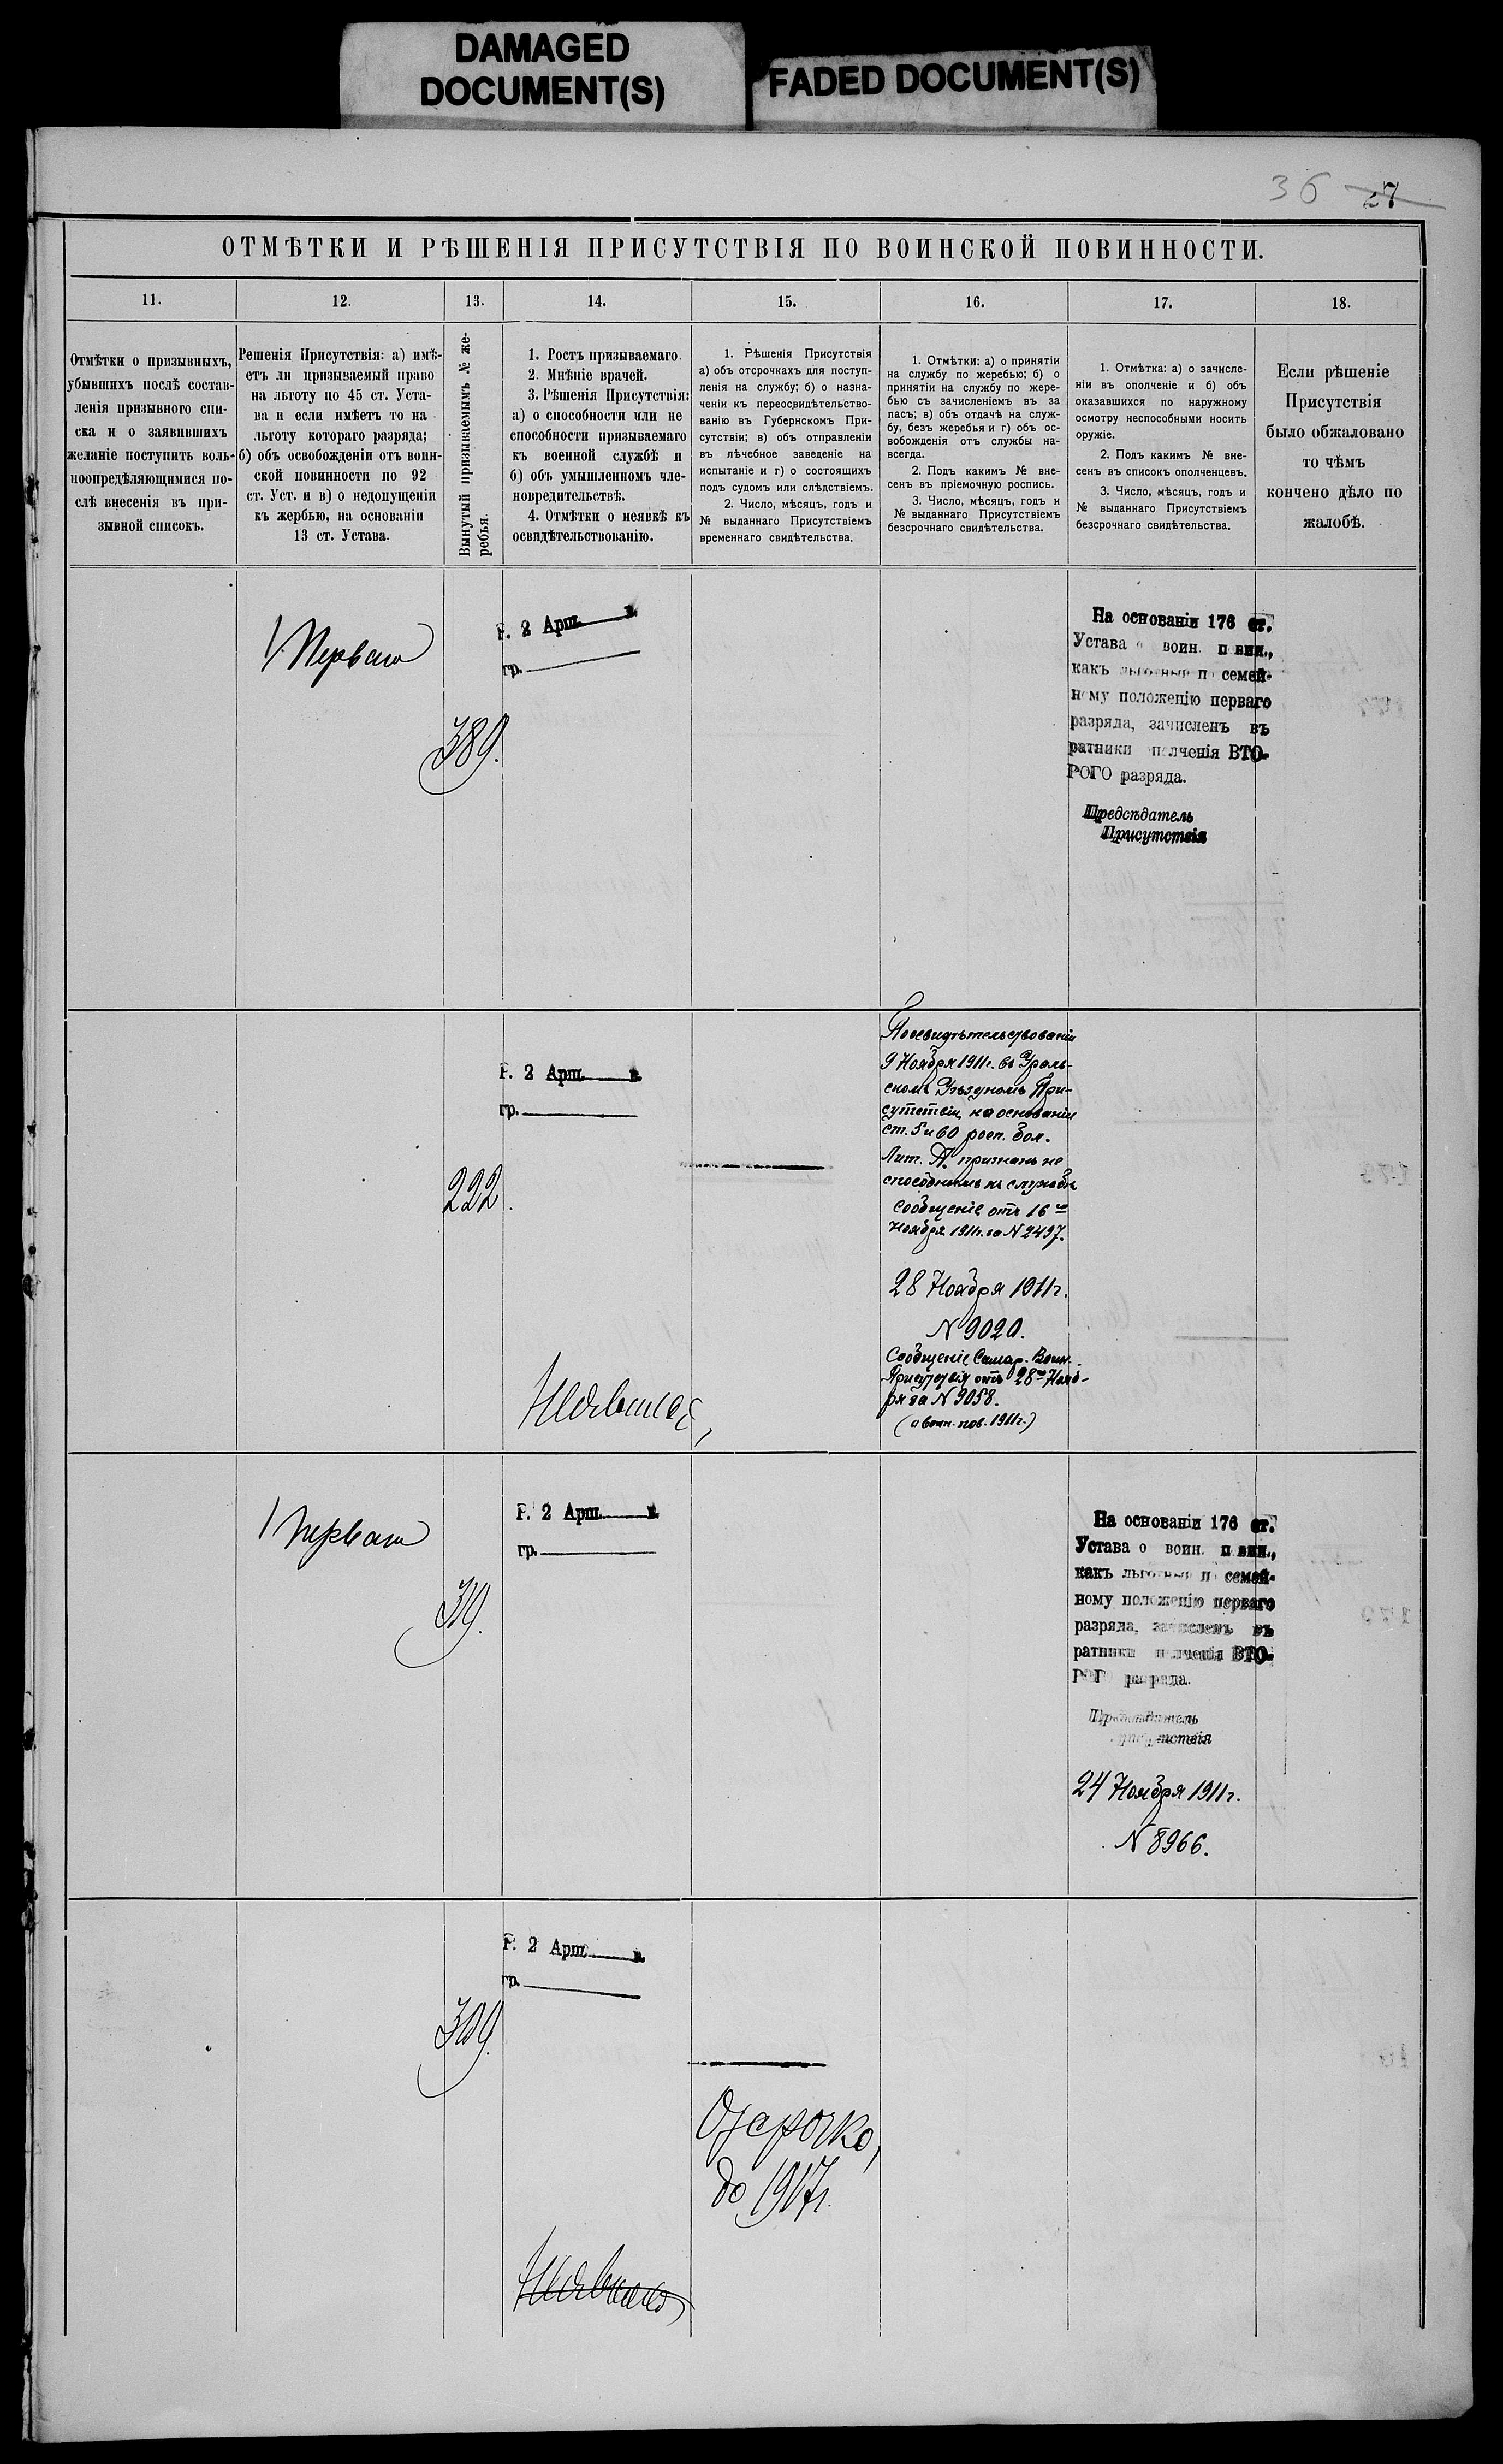 DAMAGED
DOCUMENT(S)
FADED DOCUMENT(S)
36 27
ОТМѢТКИ И РѢШЕНІЯ ПРИСУТСТВІЯ ПО ВОИНСКОЙ ПОВИННОСТИ.
11.
12.
13.
14.
15.
16.
17.
18.
Отмѣтки о призывныхъ,
убывшихъ послѣ состав-
ленія призывного спи-
ска и о заявившихъ
желаніе поступить воль-
ноопредѣляющимися по-
слѣ внесенія въ при-
зывной списокъ.
Решенія Присутствія: а) имѣ-
етъ ли призываемый право
на льготу по 45 ст. Уста-
ва и если имѣетъ то на
льготу котораго разряда;
б) объ освобожденіи отъ воин-
ской повинности по 92
ст. Уст. и в) о недопущеніи
къ жербью, на основаніи
13 ст. Устава.
Вынутый призываемымъ № же-
ребья.
1. Ростъ призываемаго.
2. Мнѣніе врачей.
3. Рѣшенія Присутствія:
а) о способности или не
способности призываемаго
къ военной службѣ и
б) объ умышленномъ чле-
новредительствѣ.
4. Отмѣтки о неявкѣ къ
освидѣтельствованію.
1. Рѣшенія Присутствія
а) объ отсрочкахъ для поступ-
ленія на службу; б) о назна-
ченіи къ переосвидѣтельство-
ванію въ Губернскомъ При-
сутствіи; в) объ отправленіи
въ лѣчебное заведеніе на
испытаніе и г) о состоящихъ
подъ судомъ или слѣдствіемъ.
2. Число, мѣсяцъ, годъ и
№ выданнаго Присутствіемъ
временнаго свидѣтельства.
1. Отмѣтки: а) о принятіи
на службу по жеребью; б) о
принятіи на службу по жере-
бью съ зачисленіемъ въ за
пасъ; в) объ отдачѣ на служ-
бу, безъ жеребья и г) объ ос-
вобожденія отъ службы на-
всегда.
2. Подъ какимъ № вне-
сенъ въ пріемочную роспись.
3. Число, мѣсяцъ, годъ и
№ выданнаго Присутствіемъ
безсрочнаго свидѣтельства.
1. Отмѣтка: а) о зачисле-
ніи въ ополченіе и б) объ
оказавшихся по наружному
осмотру неспособными носить
оружіе.
2. Подъ какимъ № вне-
сенъ въ списокъ ополченцевъ.
3. Число, мѣсяцъ, годъ и
№ выданнаго Присутствіемъ
безсрочнаго свидѣтельства.
Если рѣшеніе
Присутствія
было обжаловано
то чѣмъ
кончено дѣло по
жалобѣ.
1/ Перваго
389.
Р. 2 Арш. в.
гр.
На основаніи 176 ст.
Устава о воин. повин.,
какъ льготный по семей-
ному положенію перваго
разряда, зачисленъ въ
ратники ополченія ВТО-
РОГО разряда.
Предсѣдатель
Присутствія
222.
Р. 2 Арш. в.
гр.
Неявился,
По освидѣтельствованіи
9 Ноября 1911г. въ Ураль-
скомъ Уѣздномъ При-
сутствіи, на основаніи
ст. 5 и 60 росп. бол.
Лит. А. признанъ не
способнымъ къ службѣ
сообщеніе отъ 16го
Ноября 1911г. за N 2497.
28 Ноября 1911г.
N 9020.
Сообщеніе Самар. Воин.
Присутствія отъ 28го Нояб-
ря за N 9058.
(о воин. пов. 1911г.)
1 перваго
319.
Р. 2 Арш. в.
гр.
На основаніи 176 ст.
Устава о воин. повин.,
какъ льготный по семей-
ному положенію перваго
разряда, зачисленъ въ
ратники ополченія ВТО-
РОГО разряда.
Предсѣдатель
Присутствія
24 Ноября 1911г.
N 8966.
309.
Р. 2 Арш. в.
гр.
Отсрочка,
до 1917г.
Неявился